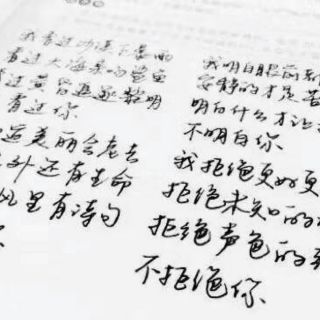 我看过沙漠下暴雨
看过大海亲吻鲨鱼
过黄昏追逐黎明
看过你
道美丽会老去
外还有生命
风里有诗句
我明白眼前都
安静的才是苦
明白什么才让
不明白你
我拒绝更好更
拒绝未知的
拒绝声色的
不拒绝你